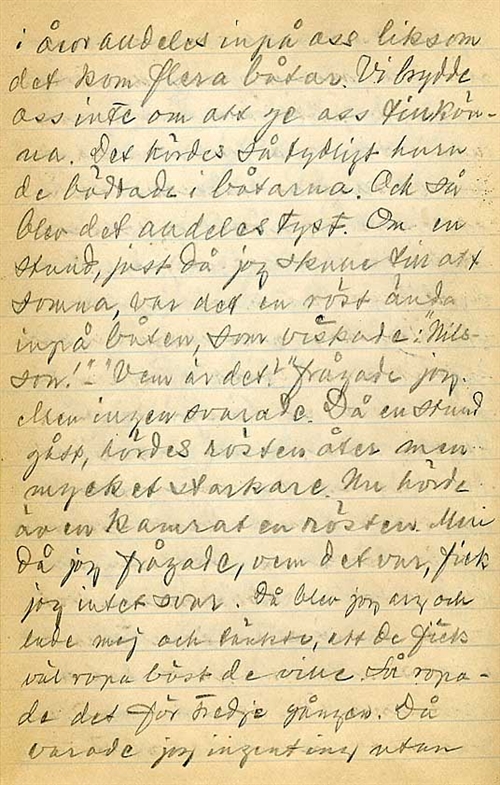 i åror alldeles inpå oss liksom
det kom flera båtar. Vi brydde
oss inte om att ge oss tillkän-
na. Det hördes så tydligt huru
de bäddade i båtarna. Och så
blev det alldeles tyst. Om en
stund, just då jag skulle till att
somna, var det en röst ända
inpå båten, som viskade: "Nils-
son!" - "Vem är det?" frågade jag.
Men ingen svarade. Då en stund
gått, hördes rösten åter men
mycket starkare. Nu hörde
även kamraten rösten. Men
då jag frågade, vem det var, fick
jag intet svar. Då blev jag arg och
lade mig och tänkte, att de fick
väl ropa bäst de ville. Så ropa-
de det för tredje gången. Då
svarade jag ingenting utan